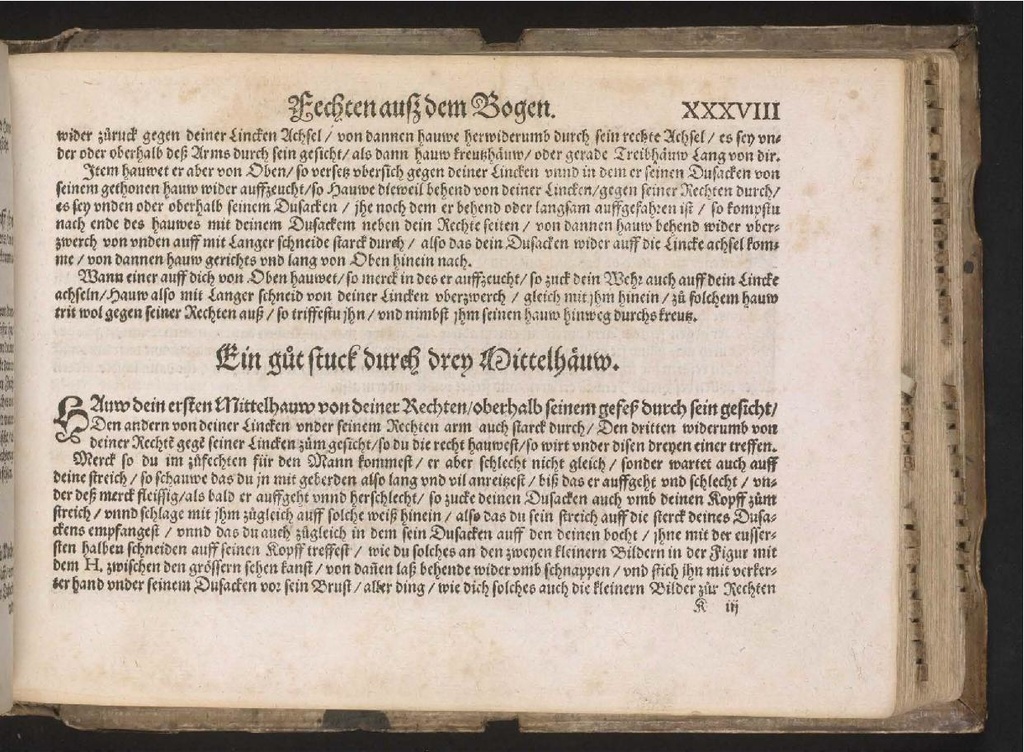 Fechten auß dem Bogen. XXXVIII
wider zůruck gegen deiner Lincken Achsel / von dannen hauwe herwiderumb durch sein rechte Achsel / es sey vn⸗
der oder oberhalb deß Arms durch sein gesicht / als dann hauw kreutzhäuw / oder gerade Treibhäuw Lang von dir.
Item hauwet er aber von Oben / so versetz vbersich gegen deiner Lincken vnnd in dem er seinen Dusacken von
seinem gethonen hauw wider auffzeucht / so Hauwe dieweil behend von deiner Lincken / gegen seiner Rechten durch /
es sey vnden oder oberhalb seinem Dusacken / jhe noch dem er behend oder langsam auffgefahren ist / so kompstu
nach ende des hauwes mit deinem Dusackem neben dein Rechte seiten / von dannen hauw behend wider vber⸗
zwerch von vnden auff mit Langer schneide starck durch / also das dein Dusacken wider auff die Lincke achsel kom⸗
me / von dannen hauw gerichts vnd lang von Oben hinein nach.
Wann einer auff dich von Oben hauwet / so merck in des er auffzeucht / so zuck dein Wehr auch auff dein Lincke
achseln / Hauw also mit Langer schneid von deiner Lincken vberzwerch / gleich mit jhm hinein / zů solchem hauw
trit wol gegen seiner Rechten auß / so triffestu jhn / vnd nimbst jhm seinen hauw hinweg durchs kreutz.
Ein gůt stuck durch drey Mittelhäuw.
HAuw dein ersten Mittelhauw von deiner Rechten / oberhalb seinem gefeß durch sein gesicht /
Den andern von deiner Lincken vnder seinem Rechten arm auch starck durch / Den dritten widerumb von
deiner Rechtē gegē seiner Lincken zům gesicht / so du die recht hauwest / so wirt vnder disen dreyen einer treffen.
Merck so du im zůfechten für den Mann kommest / er aber schlecht nicht gleich / sonder wartet auch auff
deine streich / so schauwe das du jn mit geberden also lang vnd vil anreitzest / biß das er auffgeht vnd schlecht / vn⸗
der deß merck fleissig / als bald er auffgeht vnnd herschlecht / so zucke deinen Dusacken auch vmb deinen Kopff zům
streich / vnnd schlage mit jhm zůgleich auff solche weiß hinein / also das du sein streich auff die sterck deines Dusa⸗
ckens empfangest / vnnd das du auch zůgleich in dem sein Dusacken auff den deinen bocht / jhne mit der eusser⸗
sten halben schneiden auff seinen Kopff treffest / wie du solches an den zweyen kleinern Bildern in der Figur mit
dem H. zwischen den grössern sehen kanst / von dañen laß behende wider vmb schnappen / vnd stich jhn mit verker⸗
ter hand vnder seinem Dusacken vor sein Brust / aller ding / wie dich solches auch die kleinern Bilder zůr Rechten
K iij